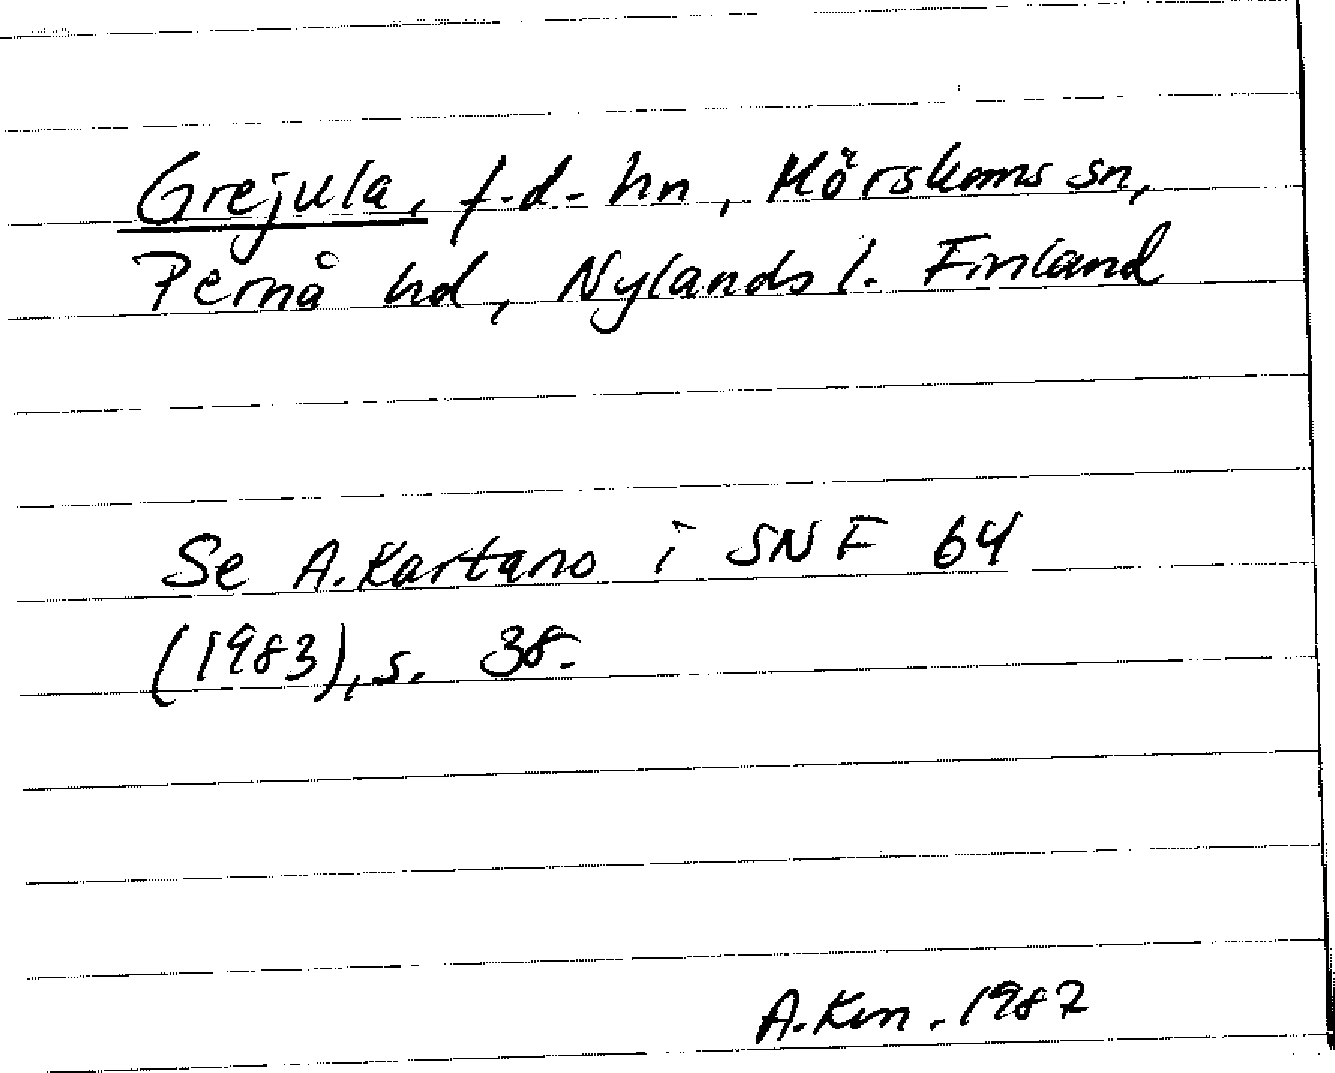 Grejula, f.d. hn, Mörskoms sn,
Pernå hd, Nylands l. Finland
Se A. Kartano i SNF 64
(1983), s. 38.
A. Kn. 1987